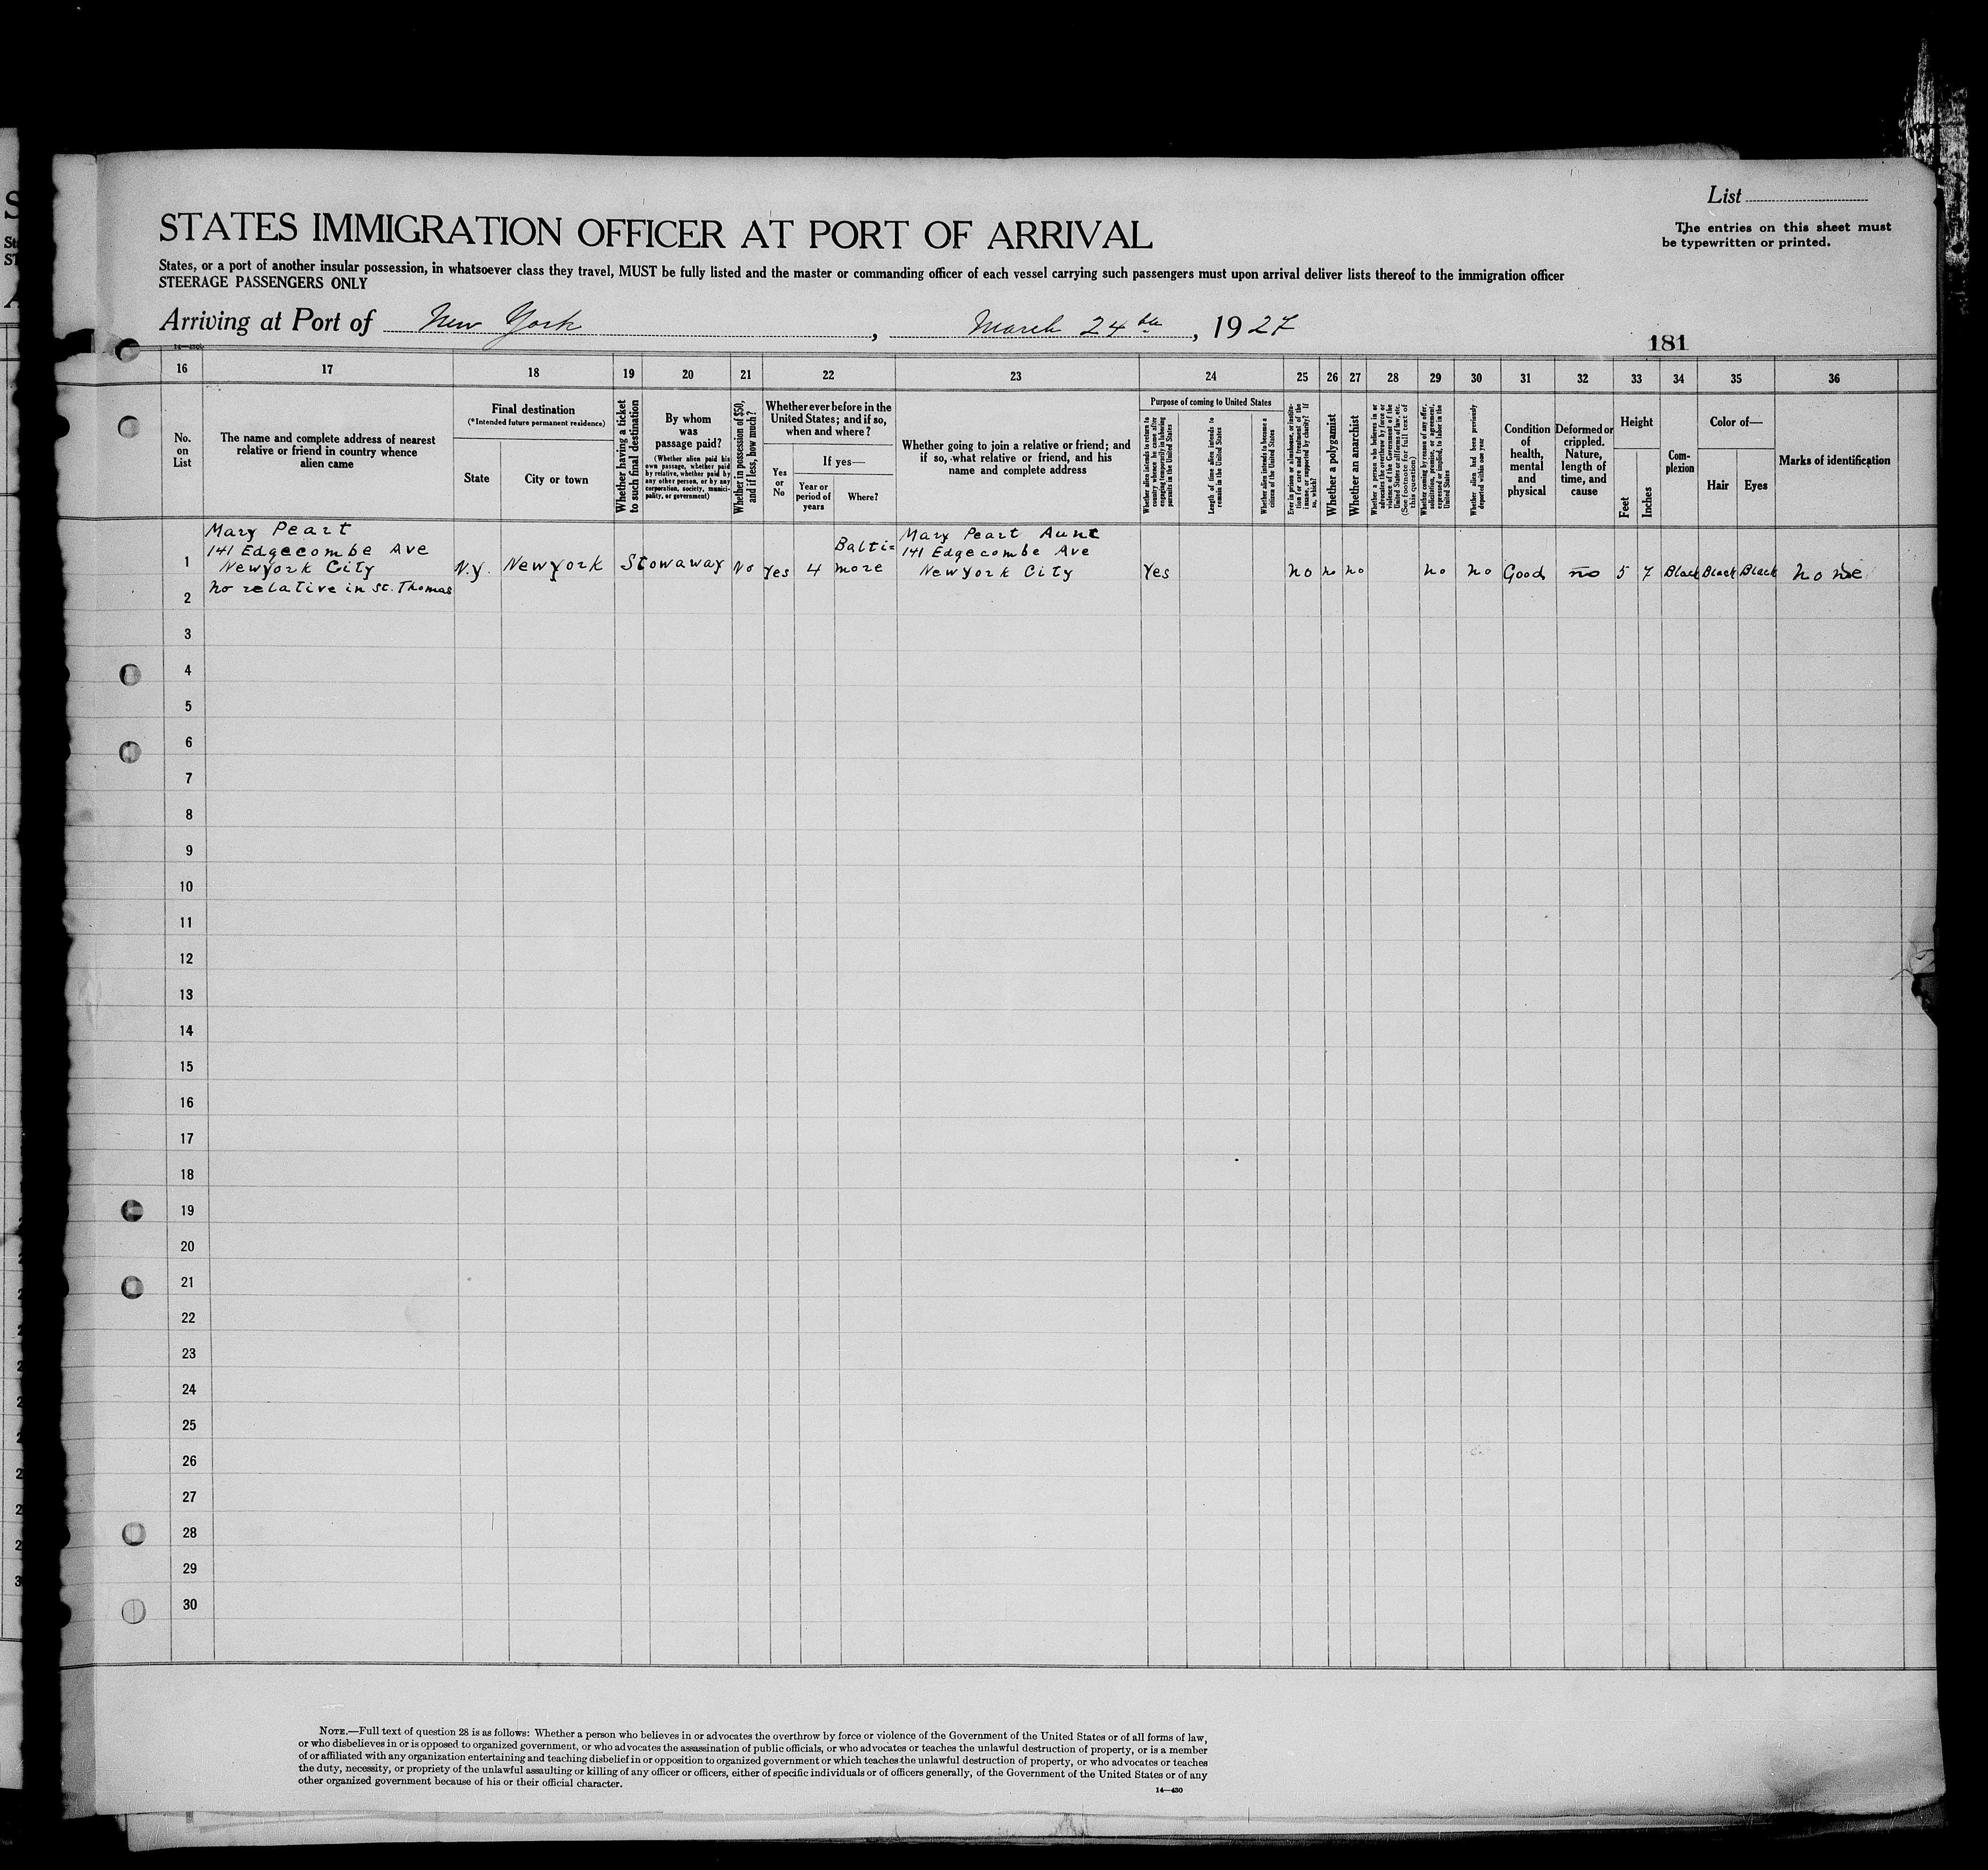 List
The entries on this sheet must
be typewritten or printed.
STATES IMMIGRATION OFFICER AT PORT OF ARRIVAL
States, or a port of another insular possession, in whatsoever class they travel, MUST be fully listed and the master or commanding officer of each vessel carrying such passengers must upon arrival deliver lists thereof to the immigration officer
STEERAGE PASSENGERS ONLY
Arriving at Port of New York, March 24th, 1927
181
16 17 18 19 20 21 22 23 24 25 26 27 28 29 30 31 32 33 34 35 36
No.
on
List
The name and complete address of nearest
relative or friend in country whence
alien came
Final destination
(*Intended future permanent residence)
State
City or town
Whether having a ticket
to such final destination
By whom
was
passage paid?
(Whether alien paid his
own passage, whether paid
by relative, whether paid by
any other person, or by any
corporation, society, munici-
pality, or government)
Whether in possession of $50,
and if less, how much?
Whether ever before in the
United States; and if so,
when and where?
Yes
or
No
If yes—
Year or
period of
years
Where?
Whether going to join a relative or friend; and
if so, what relative or friend, and his
name and complete address
Purpose of coming to United States
Whether alien intends to return to
country whence he came after
engaging temporarily in laboring
pursuits in the United States
Length of time alien intends to
remain in the United States
Whether alien intends to become a
citizen of the United States
Ever in prison or almshouse, or institu-
tion for care and treatment of the
insane, or supported by charity? If
so, which?
Whether a polygamist
Whether an anarchist
Whether a person who believes in or
advocates the overthrow by force or
violence of the Government of the
United States or all forms of law, etc.
(See footnote for full text of
this question)
Whether coming by reason of any offer,
solicitation, promise, or agreement,
expressed or implied, to labor in the
United States
Whether alien had been previously
deported within one year
Condition
of
health,
mental
and
physical
Deformed or
crippled.
Nature,
length of
time, and
cause
Height
Feet
Inches
Com-
plexion
Color of—
Hair
Eyes
Marks of identification
Mary Peart
141 Edgecombe Ave
New York City
no relative in St. Thomas
1
N.y. New York Stowaway No Yes 4
Balti=
more
Mary Peart Aunt
141 Edgecombe Ave
New York City
Yes no no no no no Good no 5 7 Black Black Black none
2
3
4
5
6
7
8
9
10
11
12
13
14
15
16
17
18
19
20
21
22
23
24
25
26
27
28
29
30
NOTE.—Full text of question 28 is as follows: Whether a person who believes in or advocates the overthrow by force or violence of the Government of the United States or of all forms of law,
or who disbelieves in or is opposed to organized government, or who advocates the assassination of public officials, or who advocates or teaches the unlawful destruction of property, or is a member
of or affiliated with any organization entertaining and teaching disbelief in or opposition to organized government or which teaches the unlawful destruction of property, or who advocates or teaches
the duty, necessity, or propriety of the unlawful assaulting or killing of any officer or officers, either of specific individuals or of officers generally, of the Government of the United States or of any
other organized government because of his or their official character.
14—430